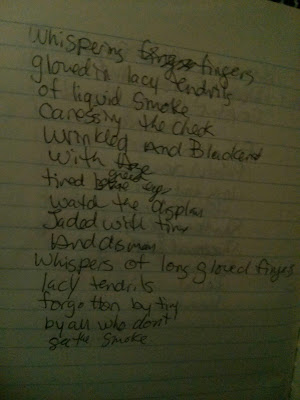 whispering fingers
gloved in lacy tendrils
of liquid smoke
Caressing the cheek
wrinkled and Blackend
with
tired eyes
watch the display
Jaded with time
And
Whispers of long gloved fingers
lacy tendrils
forgotton by
by all who don't
smoke